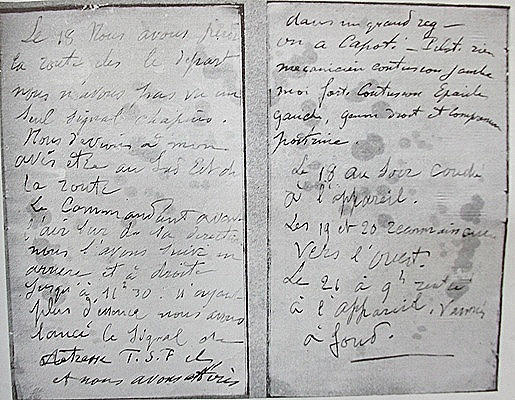 Le 18 Nous avons perdu
la route dès le départ
nous n'avons pas vu un
seul signal chapitre.
Nous devions à mon
avis être au Sud Est de
la route
Le Commandant avait
l'air sûr de sa direction
nous l'avons suivi en
arrière et à droite
jusqu'à 11h30. N'ayant
plus d'essence nous avons
lancé le signal de
détresse T.S.F et
et nous avons atterris
dans un grand reg —
on a Capoté —
mécanicien contusion jambe
moi fort. Contusion épaule
gauche, genou droit et compression
poitrine.
Le 18 au soir couché
à l'appareil.
Les 19 et 20 reconnaissance
vers l'Ouest.
Le 21 à 9h resté
à l'appareil.
à fond.